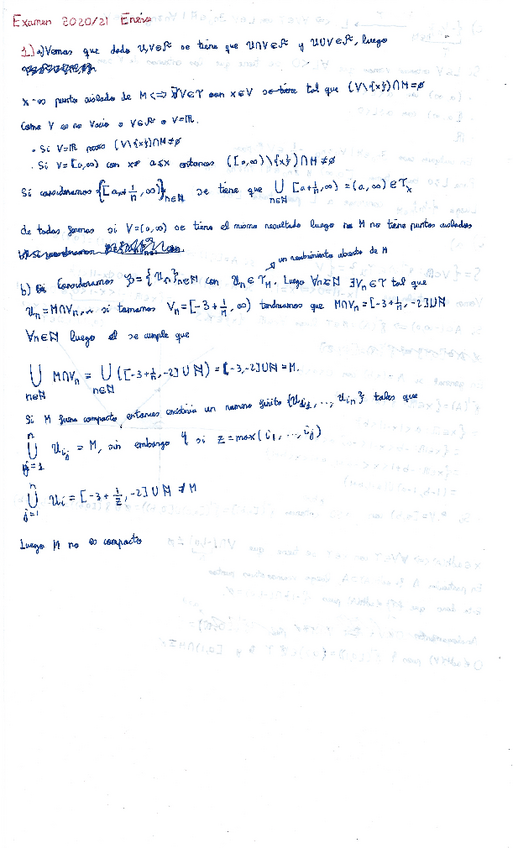 Examen 2020/21 Enero
1.) a) Vemos que dado U,V∈ℱ se tiene que U∩V∈ℱ y U∪V∈ℱ, luego
x es punto aislado de M <=> ∃V∈T con x∈V tal que (V\{x})∩M=∅
Como V es no vacío o V∈ℱ o V=ℝ.
· Si V=ℝ (V\{x})∩M≠∅
· Si V=[a,∞) con a≤x entonces ([a,∞)\{x})∩M≠∅
Si consideramos {[a+1/n,∞)}n∈ℕ se tiene que ⋃n∈ℕ [a+1/n,∞)=(a,∞)∈T
de todas formas si V=(a,∞) se tiene el mismo resultado luego M no tiene puntos aislados
un recubrimiento abierto de M
b) Consideramos {Un}n∈ℕ con Un∈T_M. Luego ∀n∈ℕ ∃Vn∈T tal que
Un=M∩Vn, si tomamos Vn=[-3+1/n,∞) tendremos que M∩Vn=[-3+1/n,-2]∪ℕ
∀n∈ℕ luego se cumple que
⋃n∈ℕ M∩Vn = ⋃n∈ℕ ([-3+1/n,-2]∪ℕ) = (-3,-2]∪ℕ=M.
Si M fuera compacto, entonces existiría un número finito {Ui1,...,Uin} tales que
⋃j=1 n Uij = M, sin embargo si z=max(i1,...,ij)
⋃j=1 n Ui = [-3+1/z,-2]∪ℕ ≠M
Luego M no es compacto